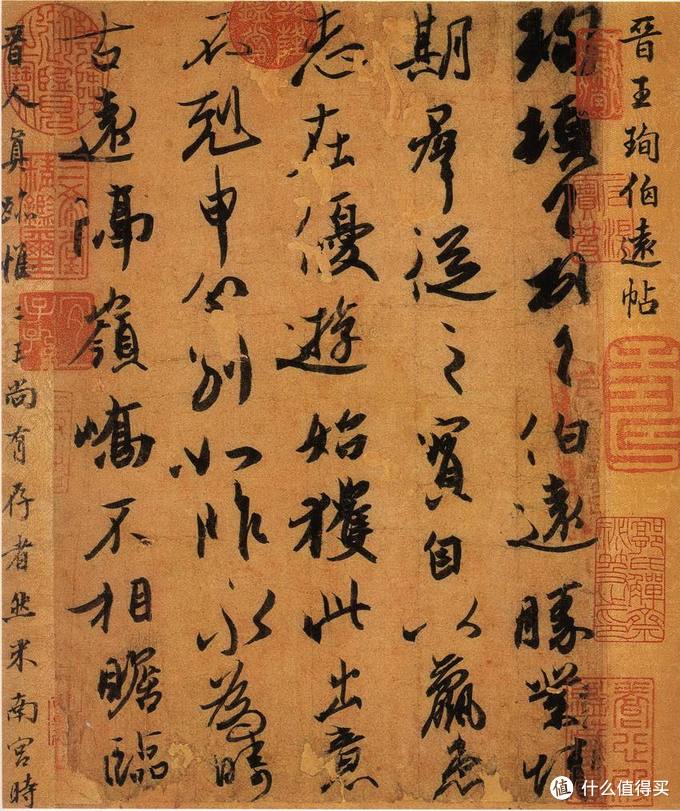 晉王珣伯遠帖
珣頓首頓首伯遠勝業情
期羣從之寶自以羸患
志在優遊始獲此出意
不剋申分別如昨永為疇
古遠隔嶺嶠不相瞻臨
晉人真跡惟二王尚有存者然米南宮時
值 什么值得买